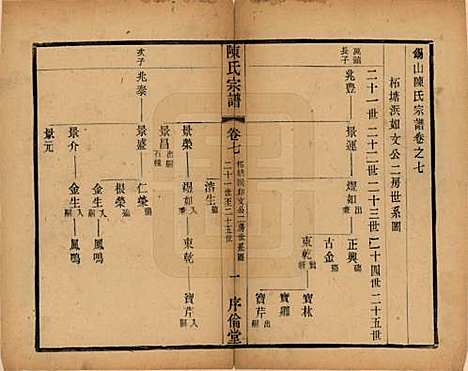 錫山陳氏宗譜卷之七
柘塘浜如文公二房世系圖
二十一世 二十二世 二十三世 二十四世 二十五世
長子 兆豊 景運 煜如 正興 嗣 出
古金
東乾 出嗣
寶林
寶卿
寶芹 出嗣
陳氏宗譜
卷七
柘塘浜如文公二房世系圖
二十一世至二十五世
一
序倫堂
次子 兆泰
景榮 煜如 入嗣 東乾 入嗣 寶芹 入嗣
濟生
景昌 出嗣
景盛 仁榮
根榮
金生 鳳鳴
景介 金生 嗣 鳳鳴
景元